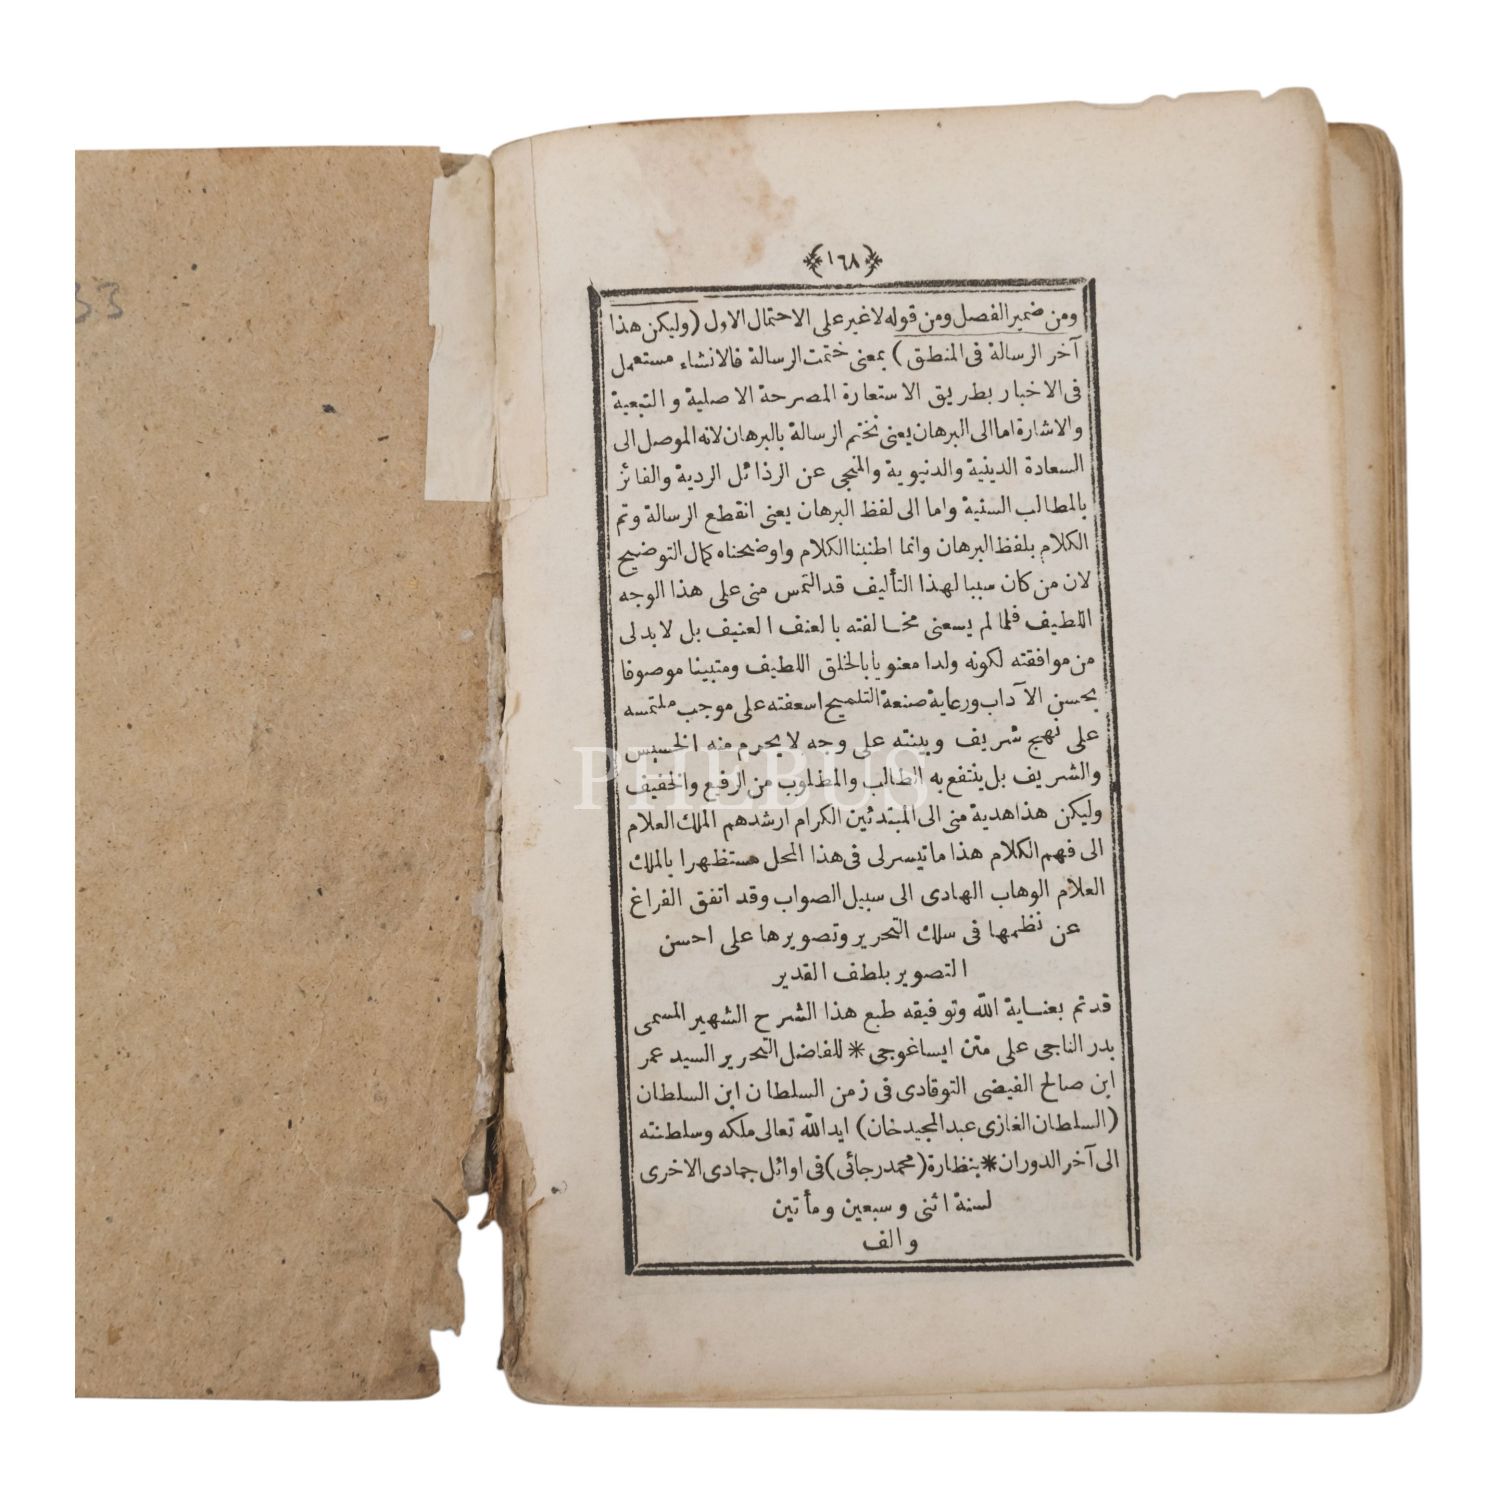 ١٦٨
ومن ضمير الفصل ومن قوله لاغير على الاحتمال الاول (وليكن هذا
آخر الرسالة فى المنطق) بمعنى ختمت الرسالة فالانشاء مستعمل
فى الاخبار بطريق الاستعارة المصرحة الاصلية والتبعية
والاشارة اما الى البرهان يعنى نختم الرسالة بالبرهان لانه الموصل الى
السعادة الدينية والدنيوية والمنجى عن الرذائل الردية والفائز
بالمطالب السنية واما الى لفظ البرهان يعنى انقطع الرسالة وتم
الكلام بلفظ البرهان وانما اطنبنا الكلام واوضحناه كمال التوضيح
لان من كان سببا لهذا التأليف قد التمس منى على هذا الوجه
اللطيف فلما لم يسعنى مخالفته بالعنف العنيف بل لابد لى
من موافقته لكونه ولدا معنويا بالخلق اللطيف ومتبينا موصوفا
بحسن الآداب ورعاية صنعة التلميح اسعفته على موجب ملتمسه
على نهج شريف وبينته على وجه لا يحرم منه الخسيس
والشريف بل ينتفع به الطالب والمطلوب من الرفيع والخفيف
وليكن هذا هدية منى الى المبتدئين الكرام ارشدهم الملك العلام
الى فهم الكلام هذا ما تيسر لى فى هذا المحل مستظهرا بالملك
العلام الوهاب الهادى الى سبيل الصواب وقد اتفق الفراغ
عن نظمها فى سلك التحرير وتصويرها على احسن
التصوير بلطف القدير
قد تم بعناية الله وتوفيقه طبع هذا الشرح الشهير المسمى
بدر الناجى على متن ايساغوجى * للفاضل التحرير السيد عمر
ابن صالح الفيضى التوقادى فى زمن السلطان ابن السلطان
(السلطان الغازى عبد المجيد خان) ايد الله تعالى ملكه وسلطنته
الى آخر الدوران * بنظارة (محمد رجائى) فى اوائل جمادى الاخرى
لسنة اثنى وسبعين ومأتين
والف
33
PHEBUS